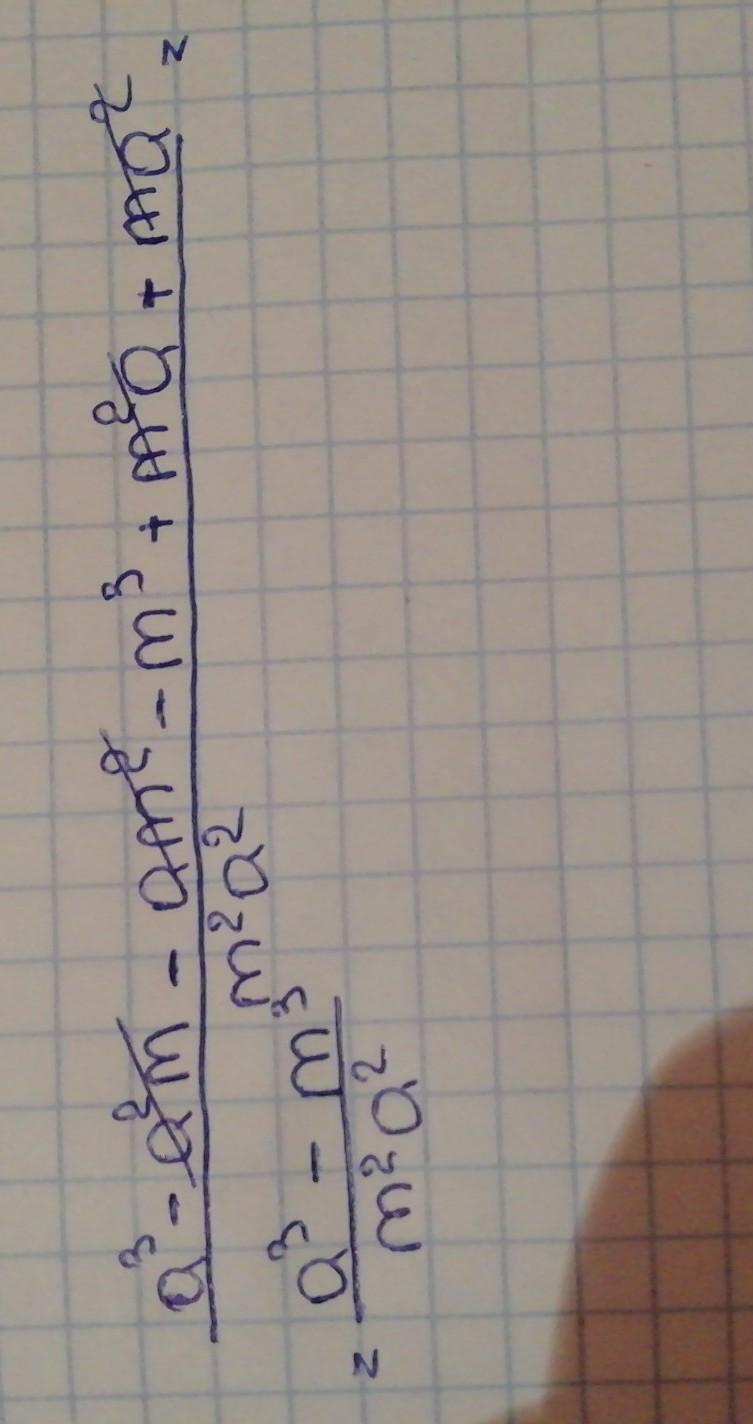 a³ - a²m - am² - m³ + m²a + ma² =
m²a²
= a³ - m³
m²a²